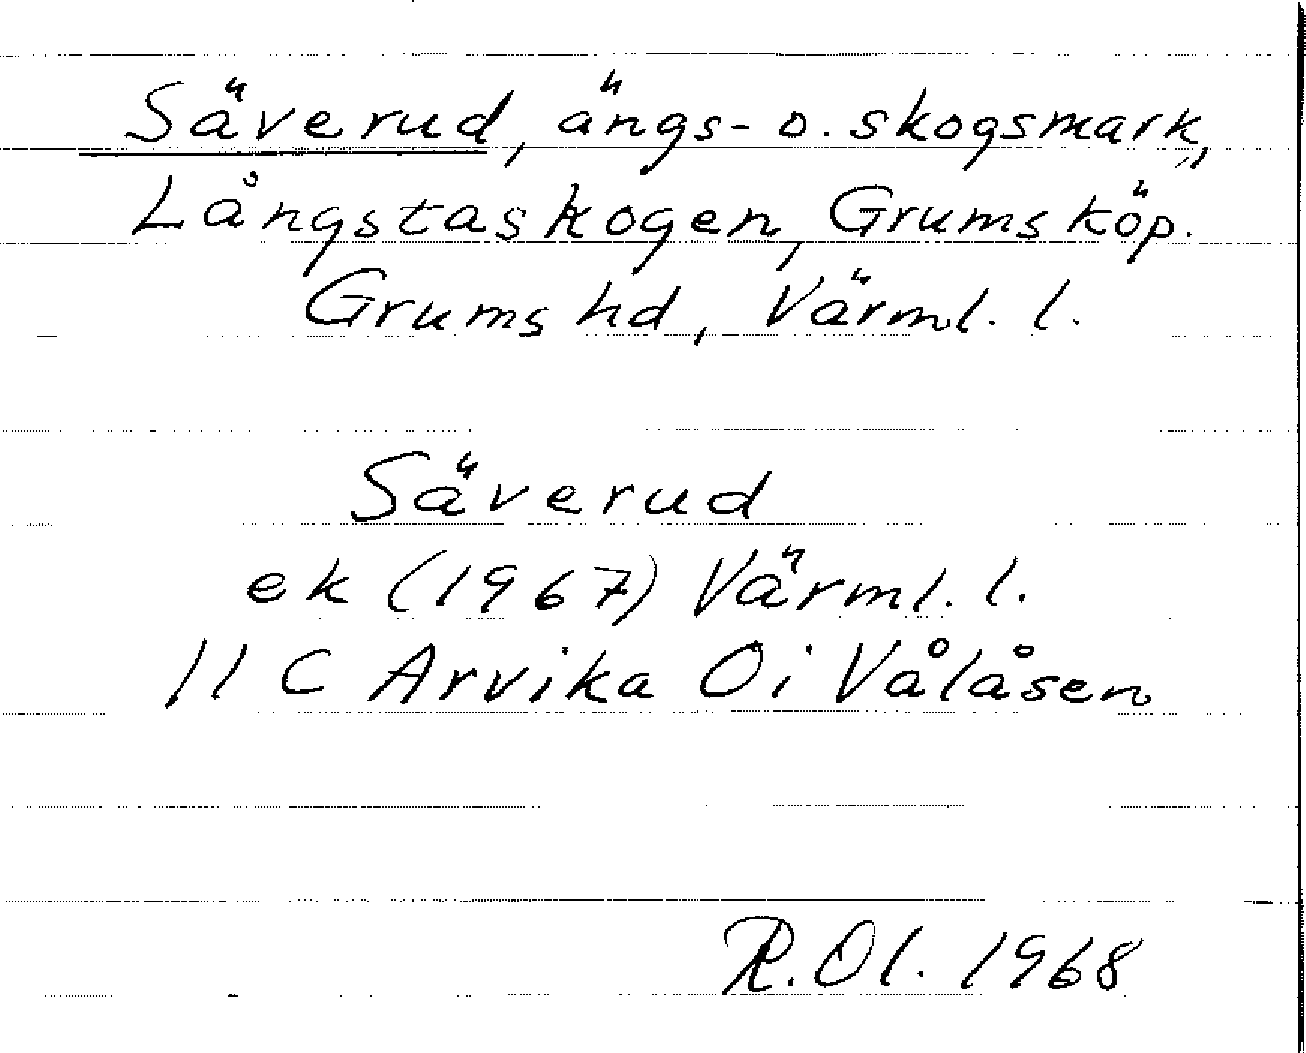 Säverud, ängs- o. skogsmark,
Långstaskogen, Grums köp.
Grums hd, Värml. l.
Säverud
ek (1967) Värml. l.
11 C Arvika Oi Vålåsen
R.Ol. 1968